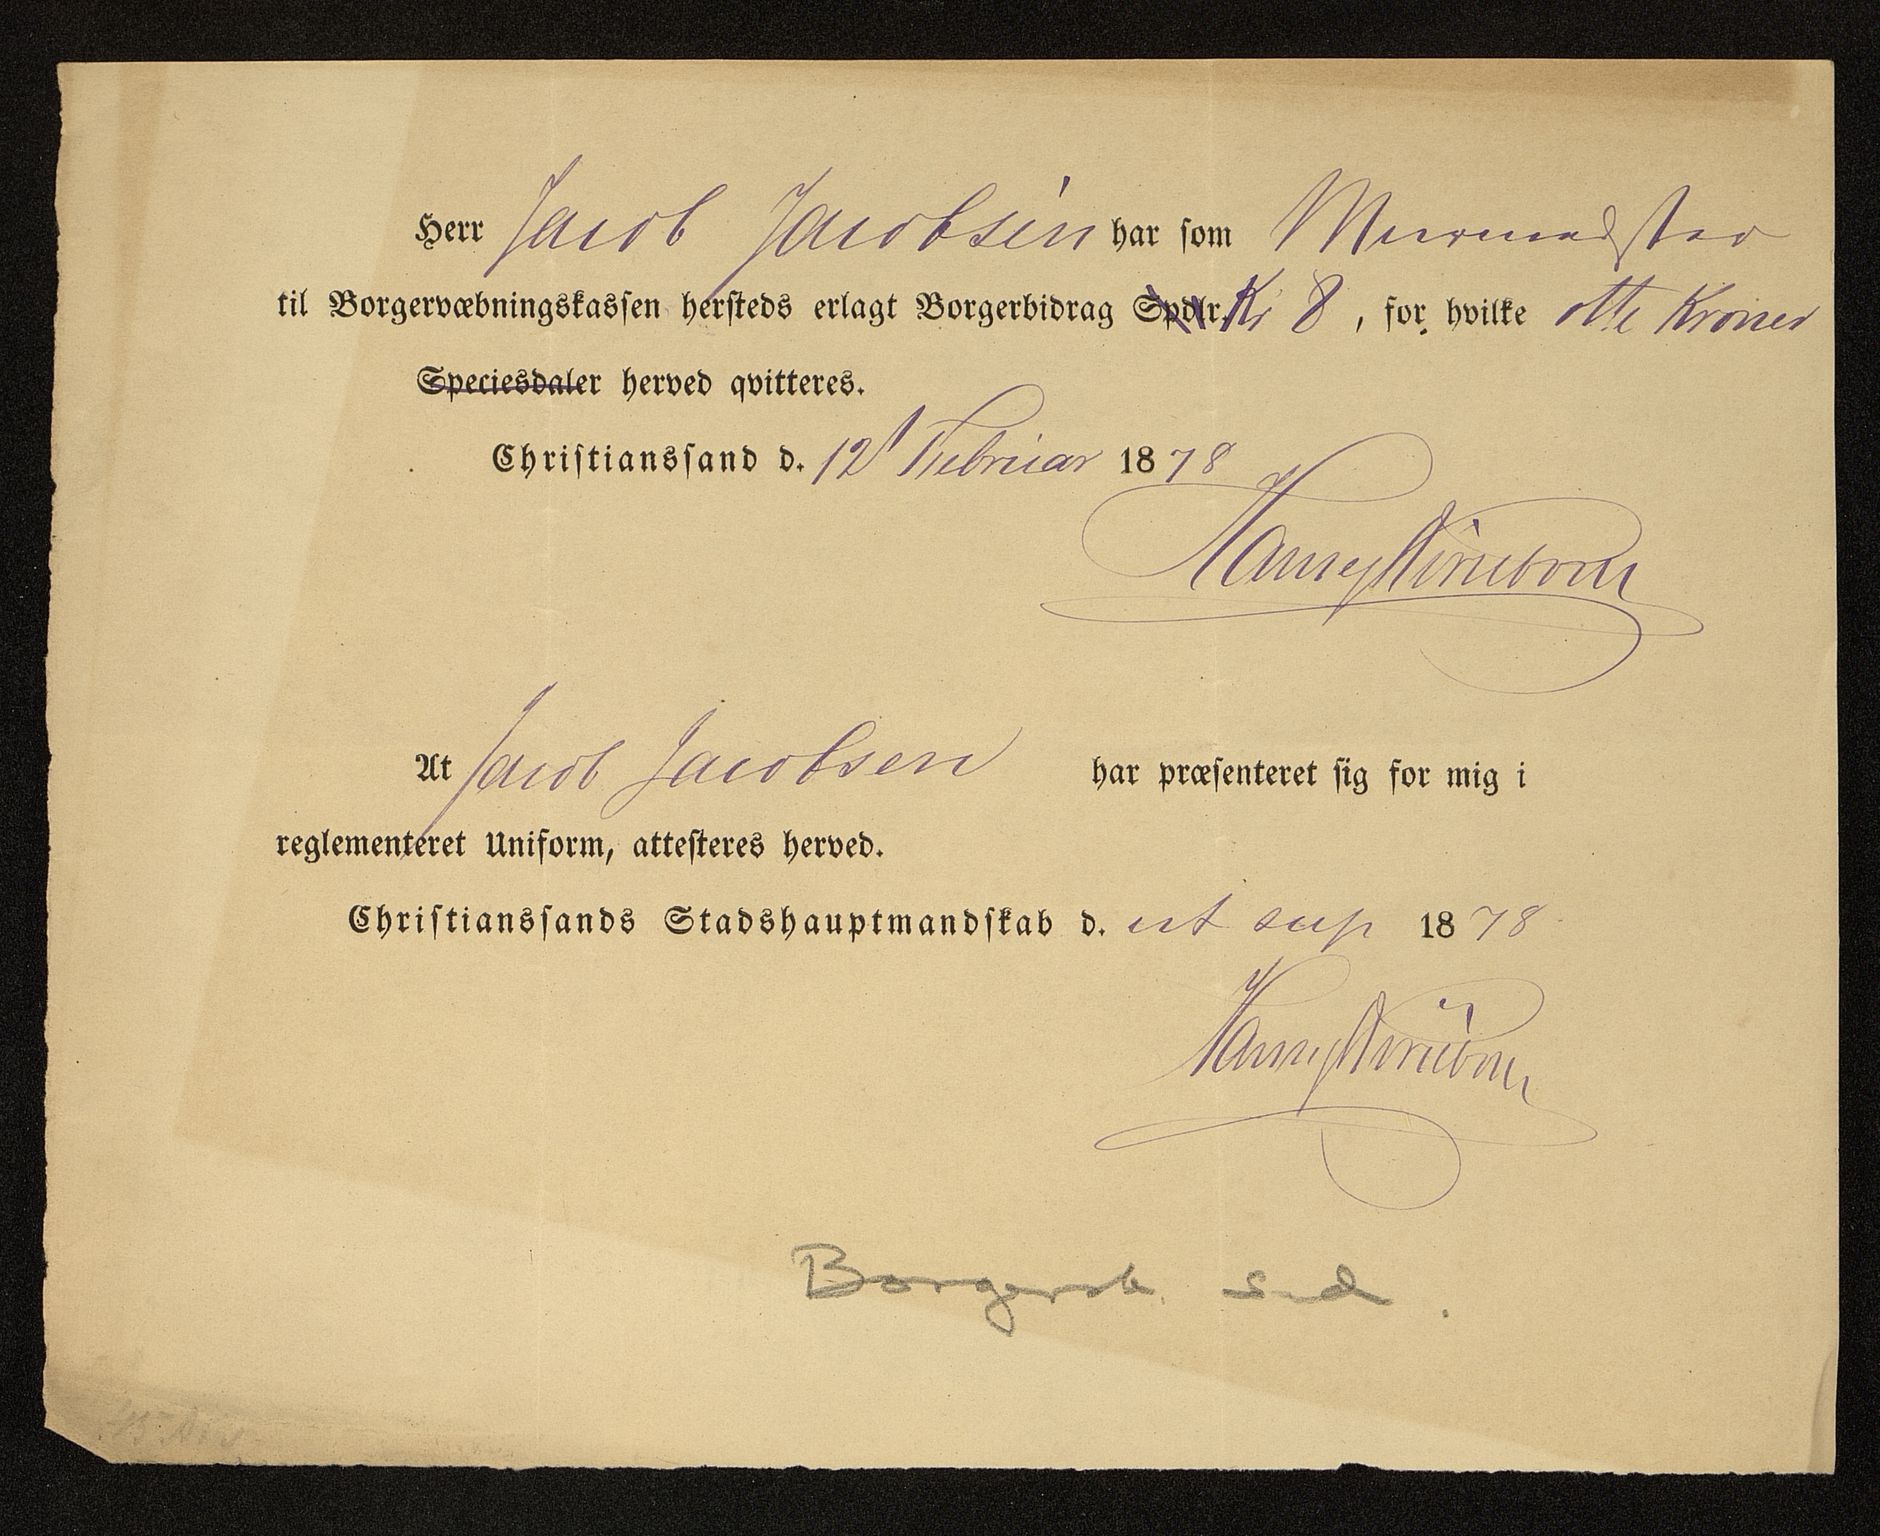 Herr Jacob Jacobsen har som Murmester
til Borgervæbningskassen hersteds erlagt Borgerbidrag Spdlr. Kr 8, for hvilke otte Kroner
Speciesdaler herved qvitteres.
Christianssand d. 12 Februar 1878
At Jacob Jacobsen har præsenteret sig for mig i
reglementeret Uniform, attesteres herved.
Christianssands Stadshauptmandskab d. ut sup 1878